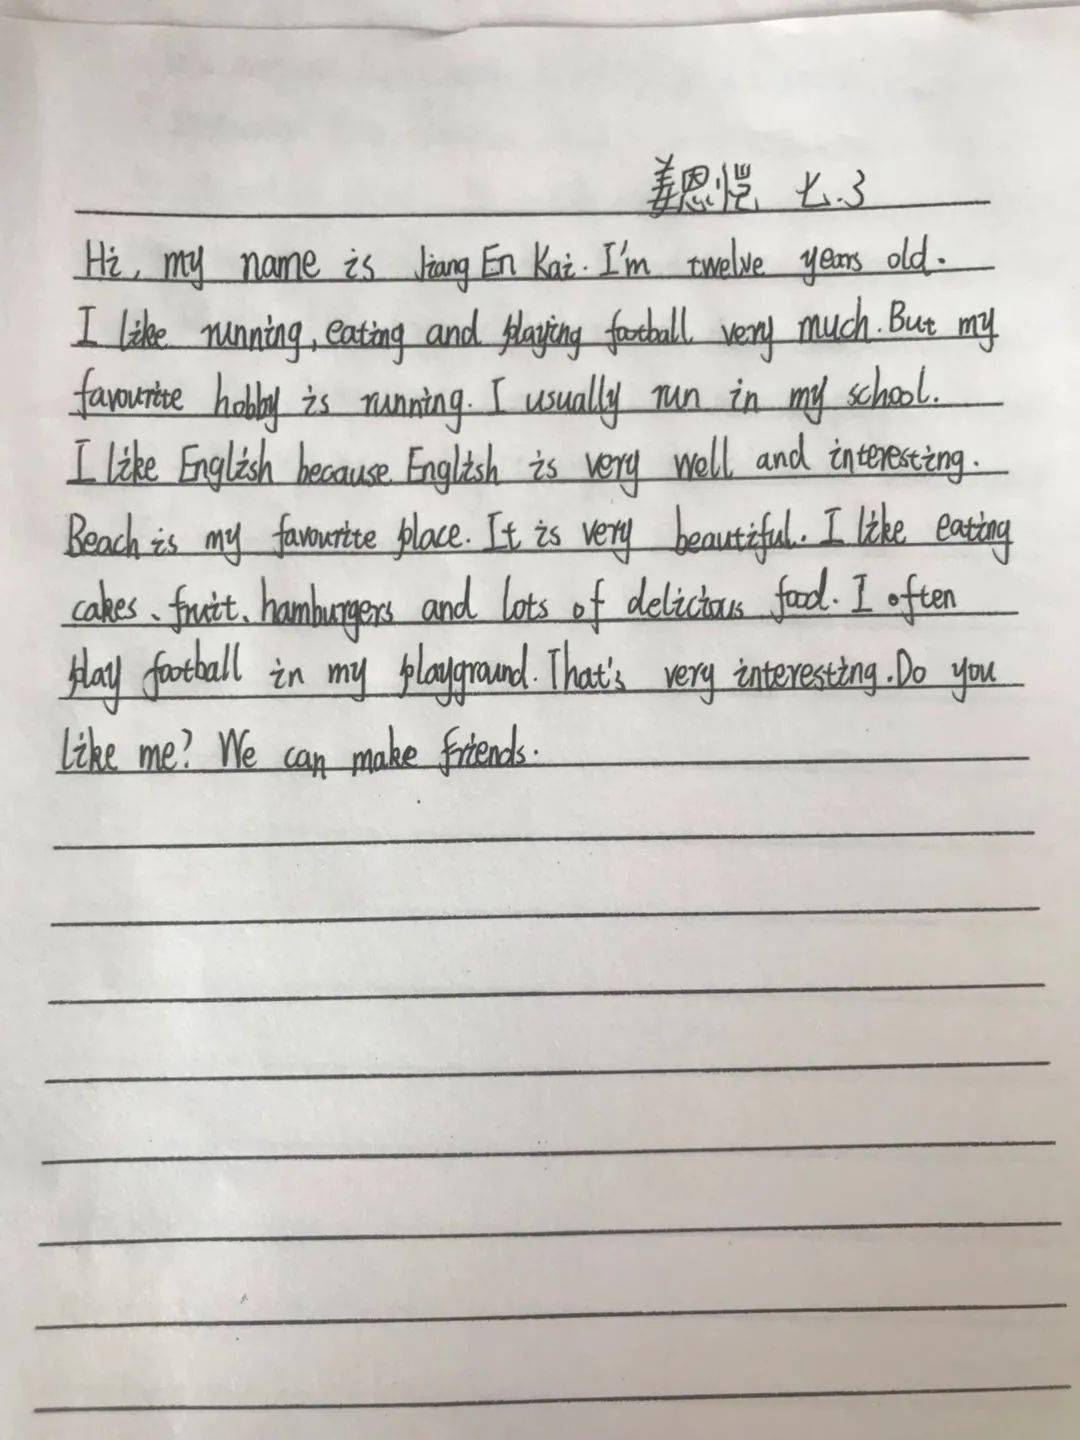 姜恩恺 七.3
Hi, my name is Jiang En Kai. I'm twelve years old.
I like running, eating and playing football very much. But my
favourite hobby is running. I usually run in my school.
I like English because English is very well and interesting.
Beach is my favourite place. It is very beautiful. I like eating
cakes、fruit、hamburgers and lots of delicious food. I often
play football in my playground. That's very interesting. Do you
like me? We can make friends.